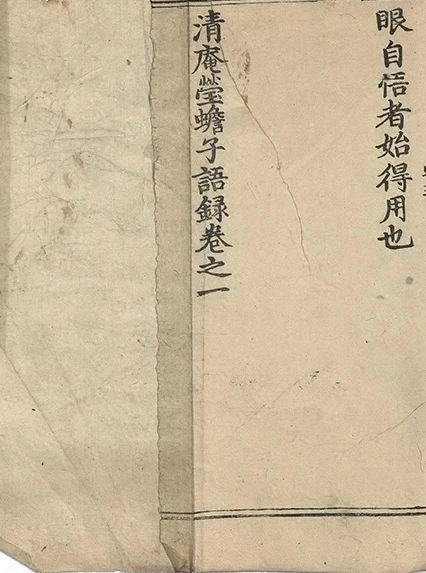 眼自悟者始得用也
清庵瑩蟾子語録卷之一